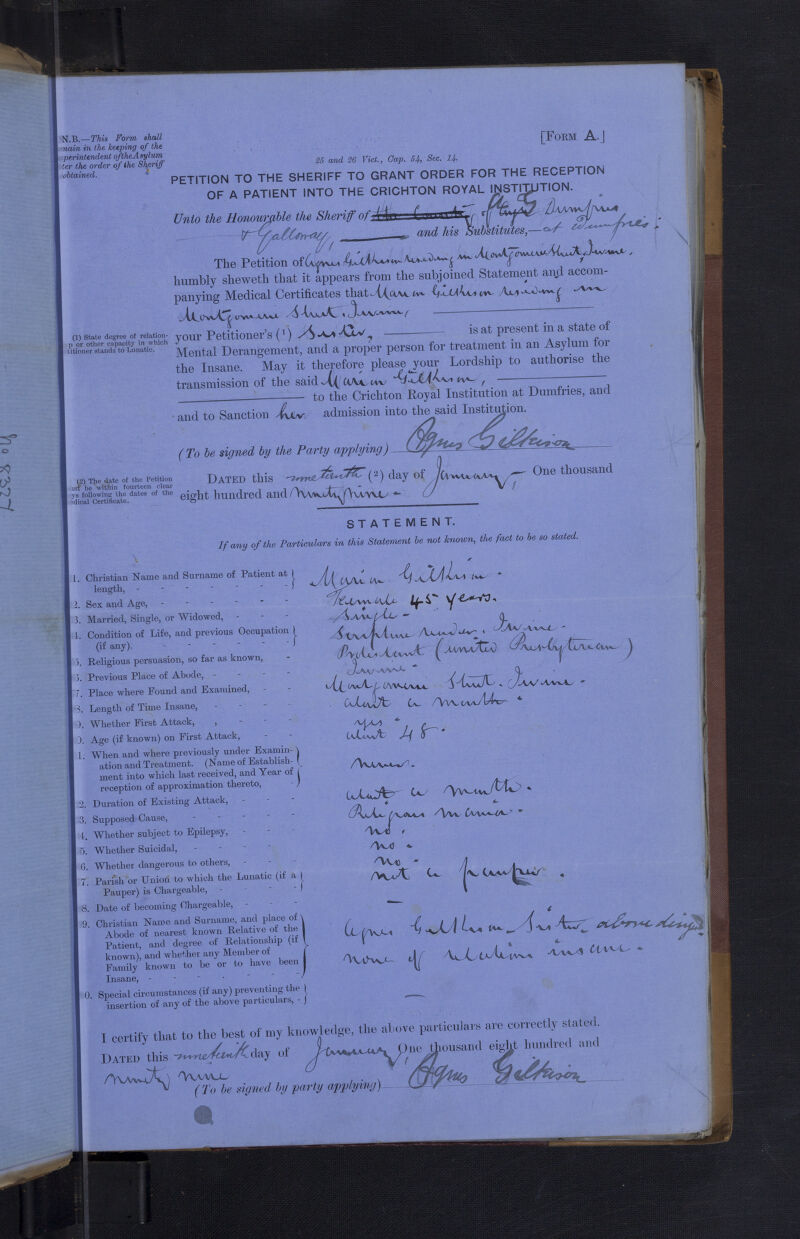 N.B.—This Form shall
main in the keeping of the
perintendent of the Asylum
ter the order of the Sheriff
obtained.
[FORM A.]
25 and 26 Vict., Cap. 54, Sec. 14.
PETITION TO THE SHERIFF TO GRANT ORDER FOR THE RECEPTION
OF A PATIENT INTO THE CRICHTON ROYAL INSTITUTION.
Unto the Honourable the Sheriff of the County of Dumfries
& Galloway, and his Substitutes,—at Dumfries:
The Petition of Agnes Gilkison residing in Montgomerie Street, Irvine,
humbly sheweth that it appears from the subjoined Statement and accom-
panying Medical Certificates that Marion Gilkison residing in
Montgomerie Street, Irvine,
(1) State degree of relation-
p or other capacity in which
titioner stands to Lunatic.
your Petitioner's (1) Sister, is at present in a state of
Mental Derangement, and a proper person for treatment in an Asylum for
the Insane. May it therefore please your Lordship to authorise the
transmission of the said Marion Gilkison,
to the Crichton Royal Institution at Dumfries, and
and to Sanction her admission into the said Institution.
(To be signed by the Party applying) Agnes Gilkison
(2) The date of the Petition
ust be within fourteen clear
ys following the dates of the
edical Certificate.
DATED this nineteenth (2) day of January, One thousand
eight hundred and Ninety Nine -
No 8327
STATEMENT.
If any of the Particulars in this Statement be not known, the fact to be so stated.
1. Christian Name and Surname of Patient at length, - Marion Gilkison -
2. Sex and Age, - Female 45 years.
3. Married, Single, or Widowed, - Single -
4. Condition of Life, and previous Occupation (if any). Scripture reader. Irvine -
5. Religious persuasion, so far as known, - Protestant (United Presbyterian)
6. Previous Place of Abode, - Irvine -
7. Place where Found and Examined, - Montgomerie Street. Irvine -
8. Length of Time Insane, - about a month -
9. Whether First Attack, - yes -
0. Age (if known) on First Attack, about 45 -
1. When and where previously under Examin-
ation and Treatment. (Name of Establish-
ment into which last received, and Year of
reception of approximation thereto, never.
2. Duration of Existing Attack, - about a month.
3. Supposed Cause, - Religious mania -
4. Whether subject to Epilepsy, - no.
5. Whether Suicidal, - no -
6. Whether dangerous to others, - no -
7. Parish or Union to which the Lunatic (if a
Pauper) is Chargeable, - not a pauper.
8. Date of becoming Chargeable, - —
9. Christian Name and Surname, and place of
Abode of nearest known Relative of the
Patient, and degree of Relationship (if
known), and whether any Member of
Family known to be or to have been
Insane, -
Agnes Gilkison - Sister - above
none of relations insane -
0. Special circumstances (if any) preventing the
insertion of any of the above particulars, - —
I certify that to the best of my knowledge, the above particulars are correctly stated.
DATED this nineteenth day of January One thousand eight hundred and
Ninety Nine
(To be signed by party applying) Agnes Gilkison